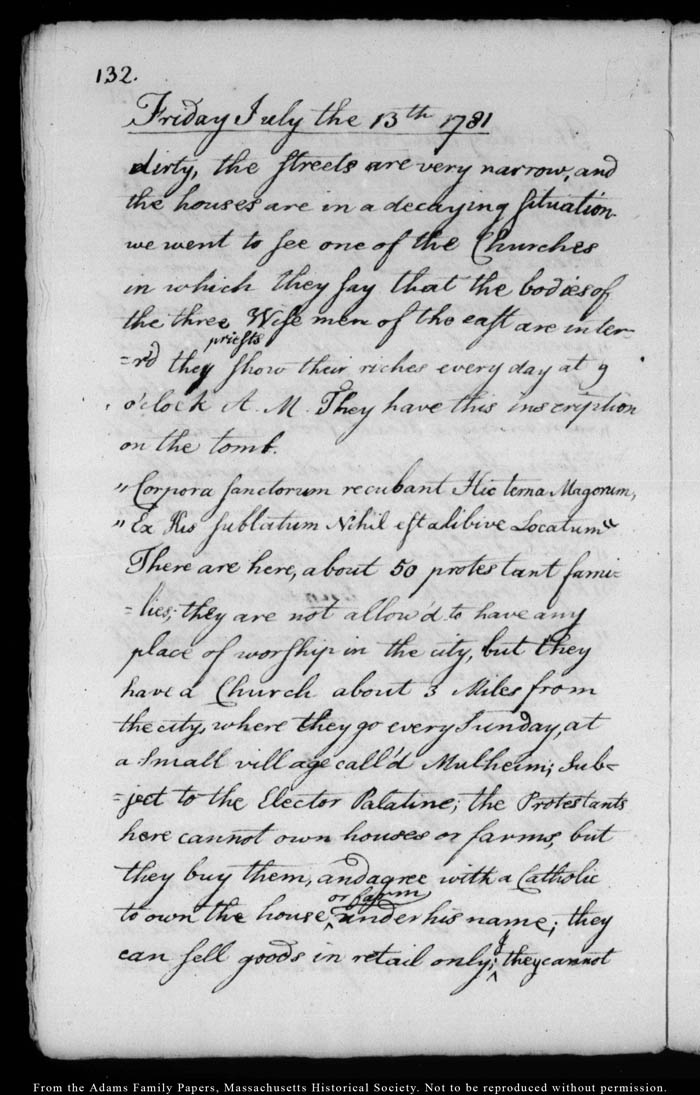 132.
Friday July the 13th 1781
dirty, the streets are very narrow, and
the houses are in a decaying situation.
we went to see one of the Churches
in which they say that the bodies of
the three Wise men of the east are inter-
=r'd they priests show their riches every day at 9
o'clock A. M. They have this inscription
on the tomb.
"Corpora sanctorum recubant Hic terna Magorum,
"Ex His sublatum Nihil est alibive Locatum"
There are here, about 50 protestant fami=
=lies; they are not allow'd to have any
place of worship in the city, but they
have a Church about 3 Miles from
the city, where they go every Sunday, at
a small village call'd Mulheim; Sub=
=ject to the Elector Palatine; the Protestants
here cannot own houses or farms, but
they buy them, and agree with a Catholic
to own the house or farm under his name; they
can sell goods in retail only; they cannot
From the Adams Family Papers, Massachusetts Historical Society. Not to be reproduced without permission.